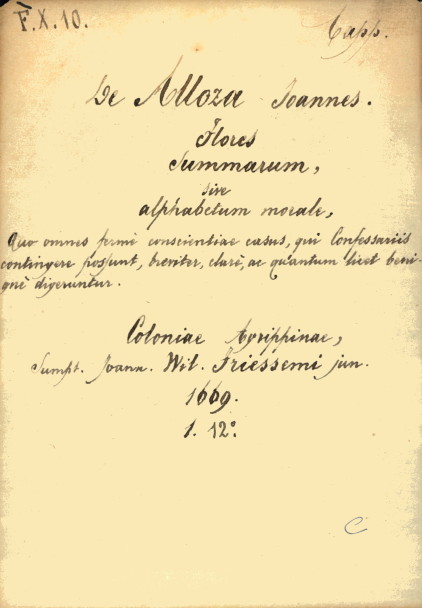 F.X.10.
Capp.
De Alloza Joannes.
Flores
Summarum,
sive
alphabetum morale,
Quo omnes fermè conscientiae casus, qui Confessariis
contingere possunt, breviter, clarè, ac quantum licet beni-
gnè digeruntur.
Coloniae Agrippinae,
Sumpt. Joann. Wil. Friessemi jun.
1669.
1. 12°.
C